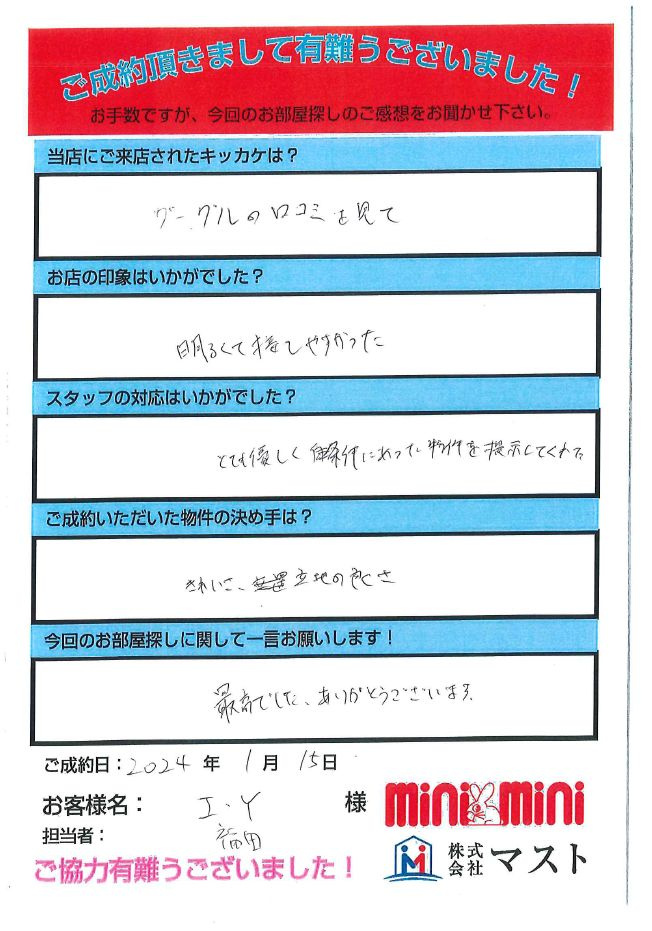 ご成約頂きまして有難うございました！
お手数ですが、今回のお部屋探しのご感想をお聞かせ下さい。
当店にご来店されたキッカケは？
グーグルの口コミを見て
お店の印象はいかがでした？
明るくて接しやすかった
スタッフの対応はいかがでした？
とても優しく 条件にあった物件を提示してくれた
ご成約いただいた物件の決め手は？
きれいさ、立地の良さ
今回のお部屋探しに関して一言お願いします！
最高でした、ありがとうございます。
ご成約日：2024 年 1 月 15日
お客様名： I・Y 様
担当者： 福田
ご協力有難うございました！
mini mini
株式会社 マスト